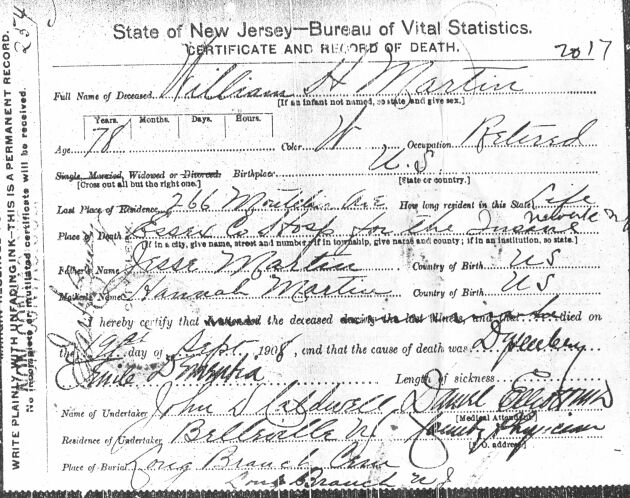 State of New Jersey—Bureau of Vital Statistics.
CERTIFICATE AND RECORD OF DEATH.
2017
254
WRITE PLAINLY WITH UNFADING INK—THIS IS A PERMANENT RECORD.
No incomplete or mutilated certificates will be received.
Full Name of Deceased, William H Martin
[If an infant not named, so state and give sex.]
Years. Months. Days. Hours.
Age 78 Color W Occupation Retired
Single, Married, Widowed or Divorced. Birthplace U.S.
[Cross out all but the right one.] [State or country.]
Last Place of Residence, 266 Ave How long resident in this State, Life
Place of Death Essex Co Hosp for the Insane Newark NJ
[If in a city, give name, street and number; if in township, give name and county; if in an institution, so state.]
Father's Name Jesse Martin Country of Birth US
Mother's Name Hannah Martin Country of Birth US
I hereby certify that I attended the deceased during the last illness, and that he died on
the 21st day of Sept 1908, and that the cause of death was Dysentery
Senile Dementia Length of sickness
Name of Undertaker John D Caldwell Daniel
[Medical Attendant]
Residence of Undertaker Belleville NJ County Physician
[P. O. address]
Place of Burial Long Branch Cem
Long Branch NJ